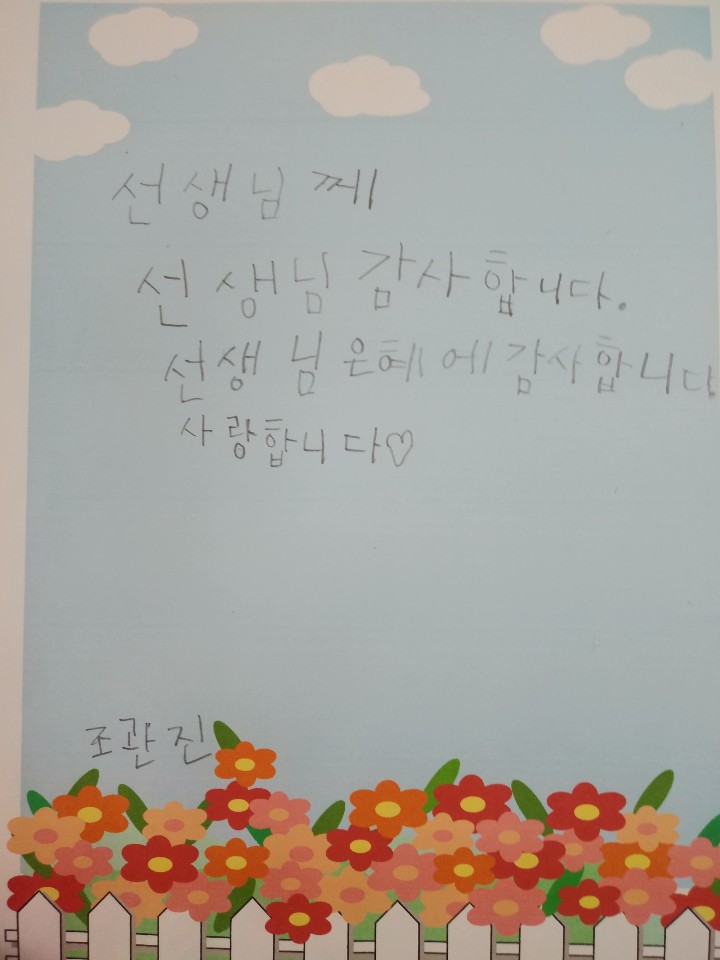 선생님께
선생님 감사합니다.
선생님 은혜에 감사합니다
사랑합니다♡
조관진